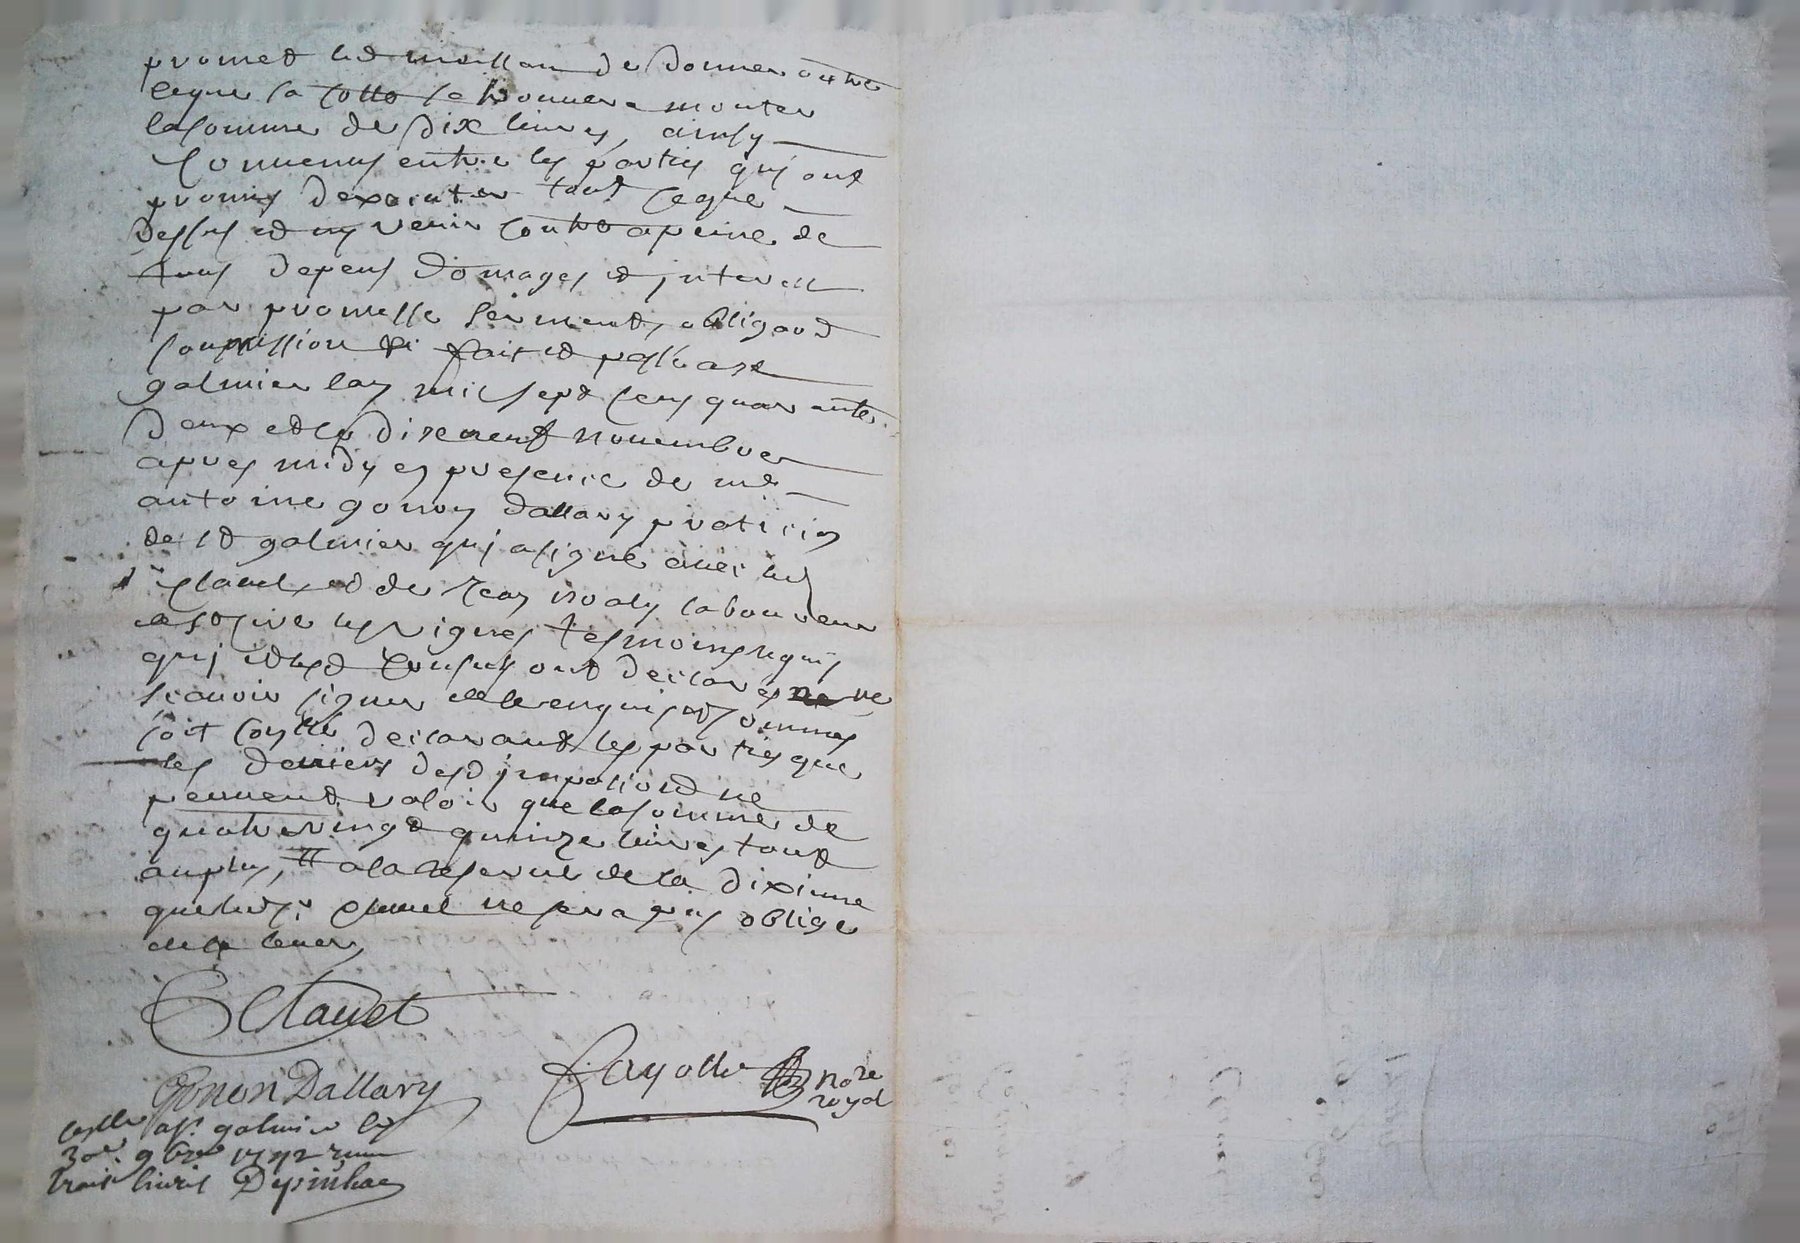 promet led moillan de donner outre
ceque la cotte se trouvera monter
la somme de dix livres, ainsy
convenus entre les parties qui ont
promis dexecuter tout ceque
dessus et ny venir contre a peine de
tous depens domages et jnterest
par promesse serment, obligaon
soumission &c fait et passé a st
galmier lan mil sept cens quarante
deux et le dixneuf novembre
apres midy en presence de me
antoine gonon dallary praticien
de st galmier qui a signé avec led
sr clavel, et de jean laboureur
des vignes tesmoins requis
qui et led ont declarés ne
scavoir signer de ce enquis et sommés
soit conllé declarant les parties que
les deniers desd jmpositions ne
peuvent valoir que la somme de
quatre vingt quinze livres tout
au plus, a la reserve de la dixime
que led sr clavel ne sera pas obligé
de la lever,
Clavel
Gonon Dallary
fayolle nore
royal
conllé a st galmier le
30e 9bre 1742 reçu
trois livres Depinhac